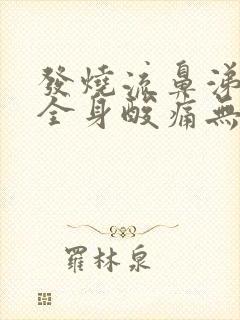 發燒流鼻涕
全身酸痛無
羅林泉